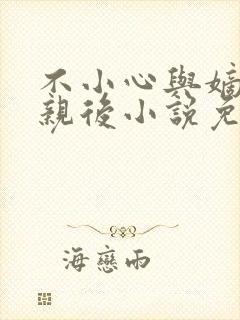 不小心與嫡
親後小說免
海戀雨